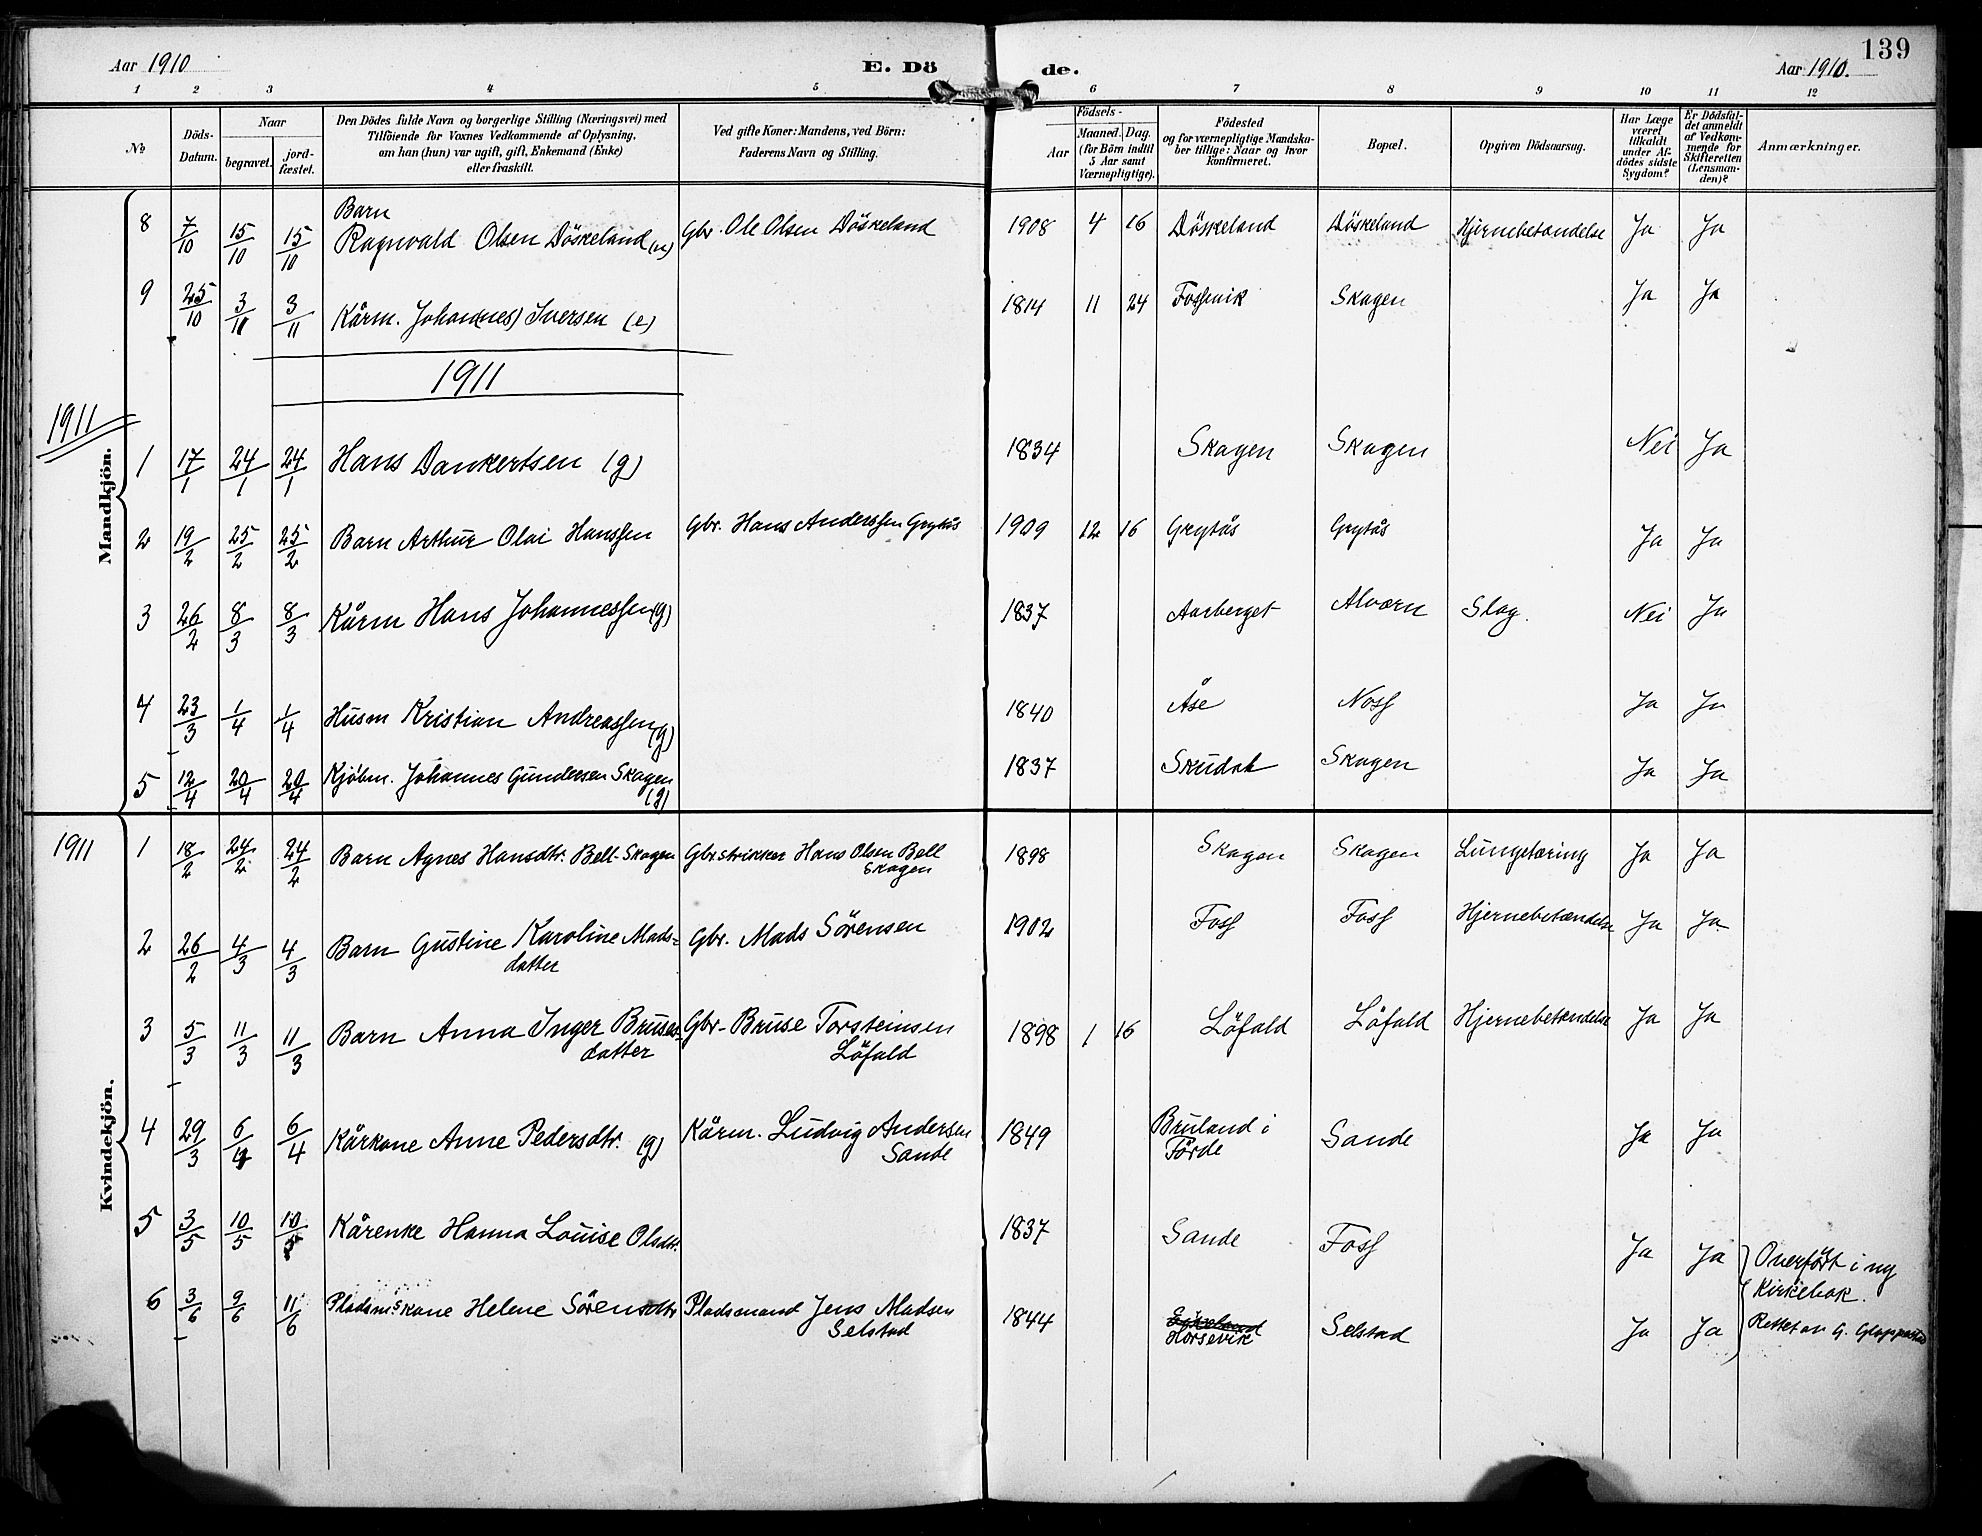 Aar 1910
E. Dö de.
Aar 1910.
139
1 2 3 4 5 6 7 8 9 10 11 12
No
Döds-Datum.
Naar
begravet.
jord-fæstet.
Den Dödes fulde Navn og borgerlige Stilling (Næringsvei) med
Tilföiende for Voxnes Vedkommende af Oplysning,
om han (hun) var ugift, gift, Enkemand (Enke)
eller fraskilt.
Ved gifte Koner: Mandens, ved Börn:
Faderens Navn og Stilling.
Aar
Födsels-
Maaned. Dag.
(for Börn indtil
5 Aar samt
Værnepligtige).
Födested
og for værnepligtige Mandska-
ber tillige: Naar og hvor
konfirmeret.
Bopæl.
Opgiven Dödsaarsag.
Har Læge
været
tilkaldt
under Af-
dödes sidste
Sygdom?
Er Dödsfal-
det anmeldt
af Vedkom-
mende for
Skifteretten
(Lensman-
den)?
Anmærkninger.
Mandkjön.
8 7/10 15/10 15/10 Barn
Ragnvald Olsen Döskeland (u) Gbr. Ole Olsen Döskeland 1908 4 16 Döskeland Döskeland Hjernebetændelse Ja Ja
9 25/10 3/11 3/11 Kårm. Johan(nes) Iversen (e) 1814 11 24 Fossevik Skagen Ja Ja
1911
1911
1 17/1 24/1 24/1 Hans Dankertsen (g) 1834 Skagen Skagen Nei Ja
2 19/2 25/2 25/2 Barn Arthur Olai Hanssen Gbr. Hans Anderssen Grytås 1909 12 16 Grytås Grytås Ja Ja
3 26/2 8/3 8/3 Kårm Hans Johannessen (g) 1837 Aarberget Alværn Slag. Nei Ja
4 23/3 1/4 1/4 Husm Kristian Andreassen (g) 1840 Åse Noss Ja Ja
5 12/4 20/4 20/4 Kjøbm. Johannes Gundersen Skagen
(g) 1837 Skudal Skagen Ja Ja
1911
Kvindekjön.
1 18/2 24/2 24/2 Barn Agnes Hansdtr. Bell-Skagen Gbrstrikker Hans Olsen Bell
Skagen 1898 Skagen Skagen Lungetæring Ja Ja
2 26/2 4/3 4/3 Barn Gustine Karoline Mads-
datter Gbr. Mads Sörensen 1902 Foss Foss Hjernebetændelse Ja Ja
3 5/3 11/3 11/3 Barn Anna Inger Bruse-
datter Gbr. Bruse Torsteinsen
Löfald 1898 1 16 Löfald Löfald Hjernebetændelse Ja Ja
4 29/3 6/4 6/4 Kårkone Anne Pedersdtr. (g) Kårm. Ludvig Andersen
Sande 1849 Bruland i
Förde Sande Ja Ja
5 3/5 10/5 10/5 Kårenke Hanna Louise Olsdtr. 1837 Sande Foss Ja Ja Overfört i ny
Kirkebok.
6 3/6 9/6 11/6 Pladsms kone Helene Sörensdtr Pladsmand Jens Madsen
Selstad 1844 Horsevik Selstad Ja Ja Rettet av G.